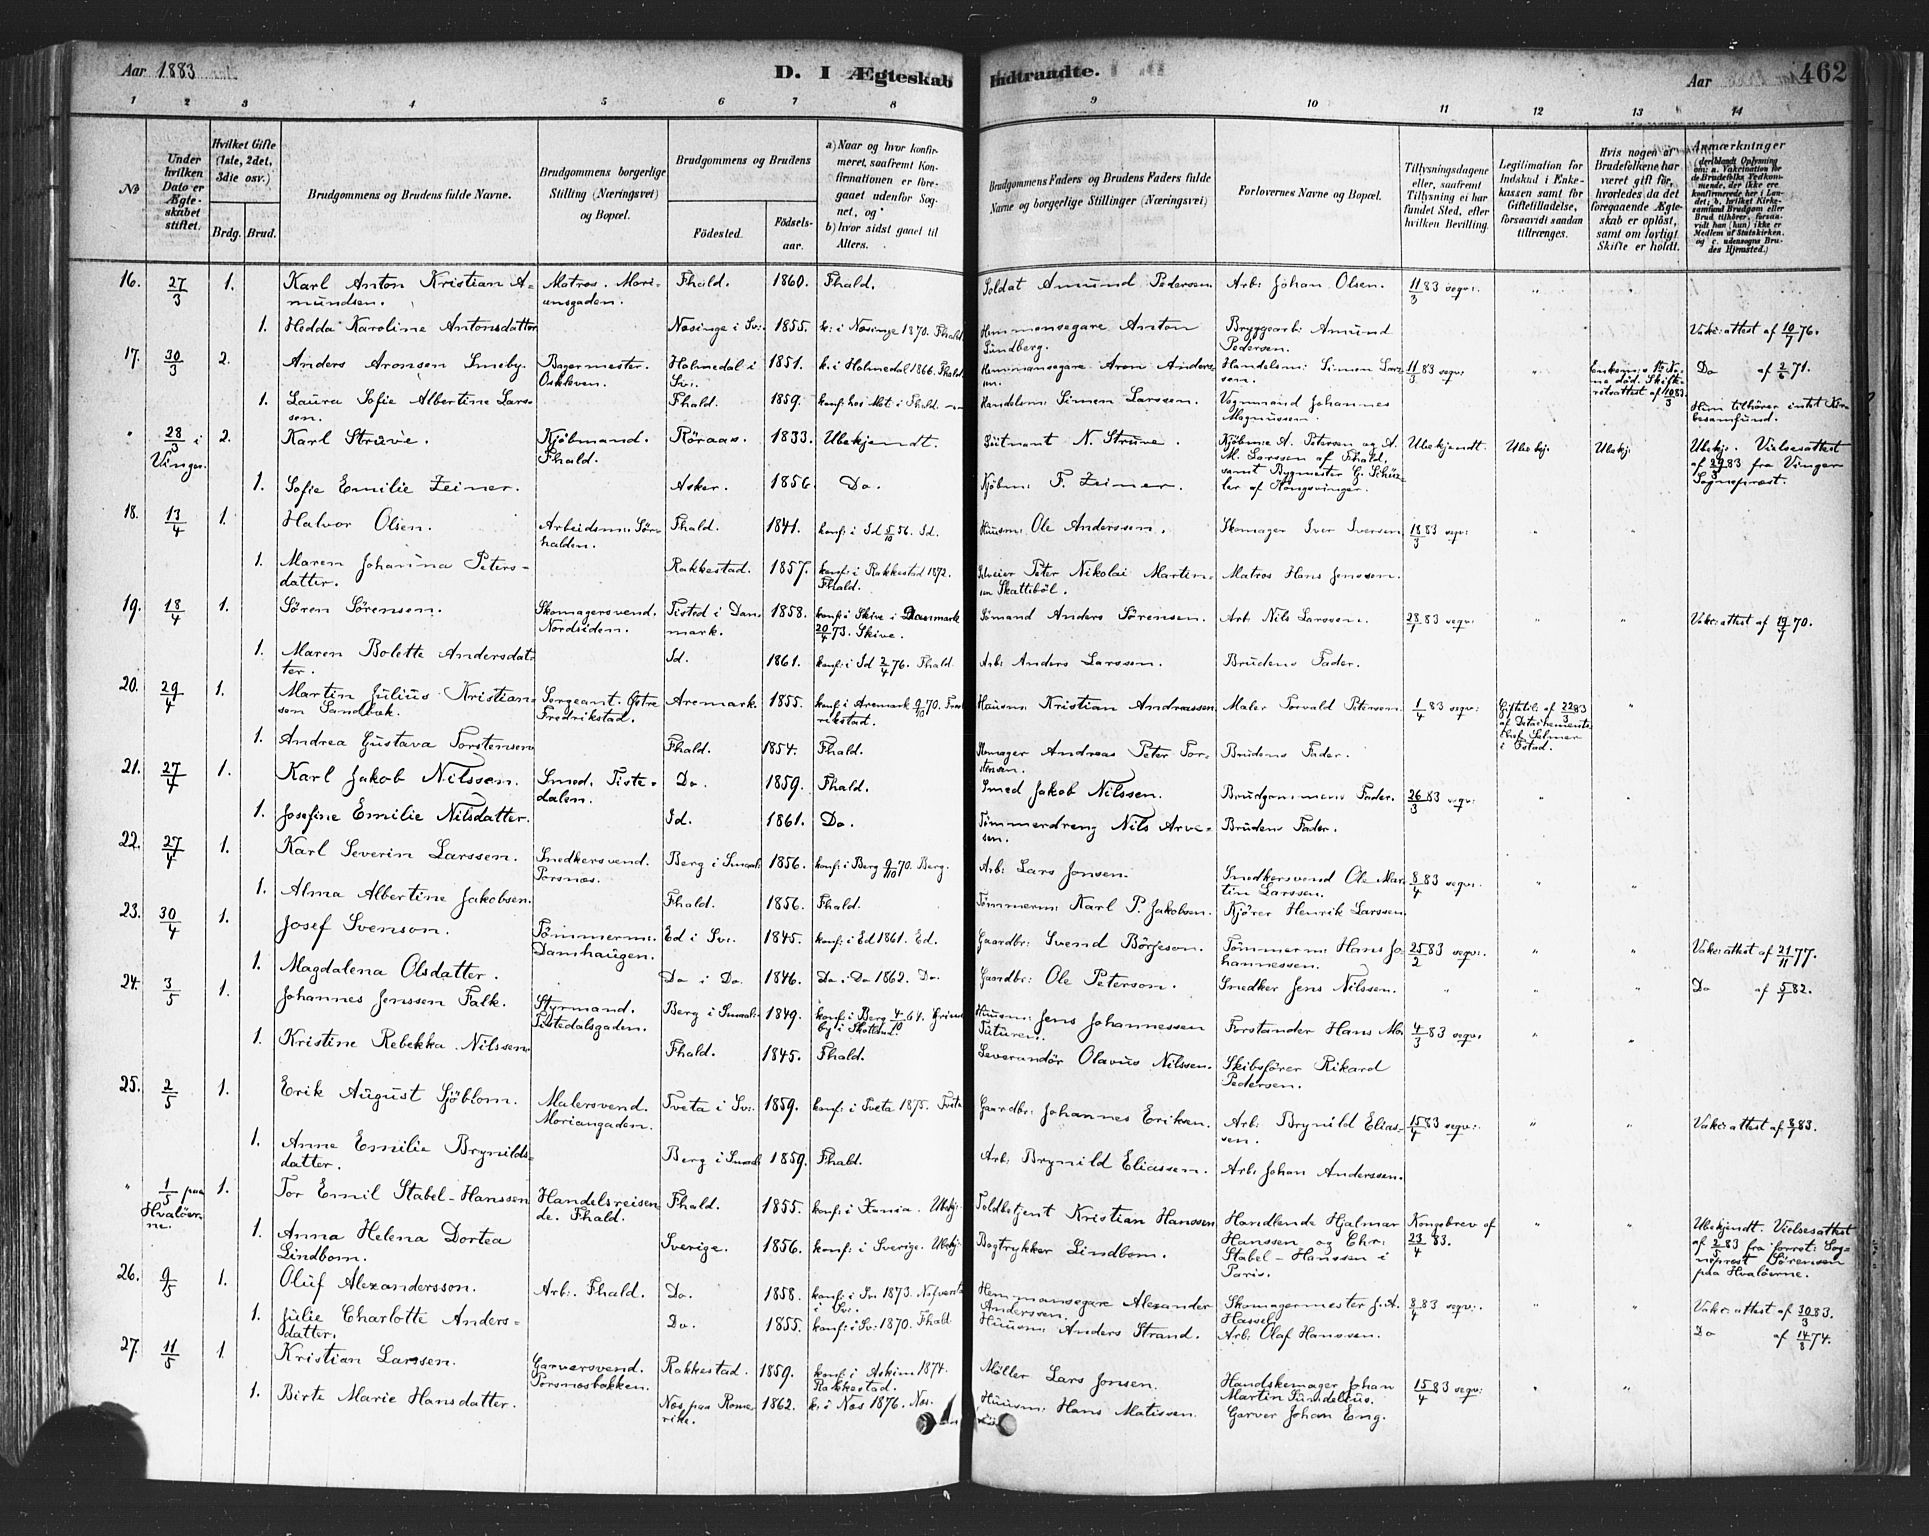 Aar 1883
D. I Ægteskab Indtraadte.
Aar
462
1 2 3 4 5 6 7 8 9 10 11 12 13 14
No
Under hvilken Dato er Ægteskabet stiftet.
Hvilket Gifte (1ste, 2det, 3die osv.)
Brdg. Brud.
Brudgommens og Brudens fulde Navne.
Brudgommens borgerlige Stilling (Næringsvei) og Bopæl.
Brudgommens og Brudens
Fødested.
Fødsels-aar.
a) Naar og hvor konfirmeret, saafremt Konfirmationen er foregaaet udenfor Sognet, og
b) hvor sidst gaaet til Alters.
Brudgommens Faders og Brudens Faders fulde Navne og borgerlige Stillinger (Næringsvei)
Forlovernes Navne og Bopæl.
Tillysningsdagene eller, saafremt Tillysning ei har fundet Sted, efter hvilken Bevilling.
Legitimation for Indskud i Enkekassen samt for Giftetilladelse, forsaavidt saadan tiltrænges.
Hvis nogen af Brudefolkene har været gift før, hvorledes da det foregaaende Ægteskab er opløst, samt om lovligt Skifte er holdt.
Anmærkninger (deriblandt Oplysning om: a. Vakcination for de Brudefolks Vedkommende, der ikke ere konfirmerede her i Landet; b. hvilket Kirkesamfund Brudgom eller Brud tilhører, forsaavidt han (hun) ikke er Medlem af Statskirken, og c. udensogns Brudes Hjemsted.)
16. 27/3 1. Karl Anton Kristian Amundsen. Matros. Moriansgaden. Fhald. 1860. Fhald. Soldat Amund Pedersen. Arb: Johan Olsen. 11/3 83 segv: " "
1. Hedda Karoline Antonsdatter Næsinge i Sv: 1855. k: i Næsinge 1870. Fhald. Hemmansegare Anton Lindberg. Bryggearb: Amund Pedersen. Vakc: attest af 10/7 76.
17. 30/3 2. Anders Aronsen Smeby. Bagermester. Oskleven. Holmedal i Sv: 1851. k. i Holmedal 1866. Fhald. Hemmansegare Aron Andersen. Handelsm: Simen Larssen. 11/3 83 segv: " Do af 2/6 71.
1. Laura Sofie Albertine Larssen. Fhald. 1859. Handelsm: Simen Larssen. Vognmand Johannes Magnussen Hun tilhører intet Kirkesamfund.
" 28/3 i Vinger. 2. Karl Struve. Kjøbmand. Fhald. Røraas. 1833. Ubekjendt. Løitnant N. Struve. Kjøbm: A. Petersen og A. M. Larssen af Fhald, samt Bygmester G. Schüssler af Kongsvinger. Ubekjendt. Ubekj. Ubekj. Ubekj. Vielsesattest af 29/3 83 fra Vinger Sognepræst.
1. Sofie Emilie Zeiner. Asker. 1856. Do. Kjøbm: F. Zeiner.
18. 13/4 1. Halvor Olsen. Arbeidsm: Sørhalden. Fhald. 1841. konf: i Id 5/10 56. Id. Huusm: Ole Anderssen. Skomager Iver Iversen 18/3 83 segv: " "
1. Maren Johanna Petersdatter. Rakkestad. 1857. konf: i Rakkestad 1872. Fhald. Selveier Peter Nikolai Martinsen Skattebøl. Matros Hans Jenssen.
19. 18/4 1. Søren Sørensen. Skomagersvend. Nordsiden. Tisted i Danmark. 1858. konf: i Skive i Danmark 20/4 73. Skive. Sømand Anders Sørensen. Arb: Nils Larssen. 28/1 83 segv: " " Vakc: attest af 19/7 70.
1. Maren Bolette Andersdatter. Id. 1861. konf: i Id 2/4 76. Fhald. Arb: Anders Larssen. Brudens Fader.
20. 29/4 1. Martin Julius Kristiansen Sandbæk. Sergeant. Østre Fredrikstad. Aremark. 1855. konf: i Aremark 9/10 70. Fredrikstad. Huusm: Kristian Andreassen Maler Torvald Petersen. 1/4 83 segv: Giftetil: af 22/3 83 af Detachementschef Selmer i Fstad. "
1. Andrea Gustava Torstensen Fhald. 1854. Fhald. Skomager Andreas Peter Torstensen. Brudens Fader.
21. 27/4 1. Karl Jakob Nilssen. Smed. Tistedalen. Do. 1859. Fhald. Smed Jakob Nilssen. Brudgommens Fader. 26/3 83 segv: " "
1. Josefine Emilie Nilsdatter. Id. 1861. Do. Tømmerdreng Nils Arvesen. Brudens Fader.
22. 27/4 1. Karl Severin Larssen. Snedkersvend. Porsnæs. Berg i Smaal: 1856. konf: i Berg 9/10 70. Berg. Arb: Lars Jonsen. Snedkersvend Ole Martin Larssen. 8/4 83 segv: " "
1. Alma Albertine Jakobsen. Fhald. 1856. Fhald. Tømmerm: Karl P. Jakobsen. Kjører Henrik Larssen.
23. 30/4 1. Josef Svenson. Tømmerm: Damhaugen. Ed i Sv: 1845. konf: i Ed 1861. Ed. Gaardbr: Svend Börjeson. Tømmerm: Hans Johannessen. 25/2 83 segv: " " Vakc: attest af 21/11 77.
1. Magdalena Olsdatter. Do i Do. 1846. Do i Do 1862. Do. Gaardbr: Ole Peterson. Snedker Jens Nilssen. " " " Do af 5/7 82.
24. 3/5 1. Johannes Jenssen Falk. Styrmand. Tistedalsgaden. Berg i Smaal: 1849. konf: i Berg 4/10 64. Huusm: Jens Johannessen Forstander Hans Mo 4/3 83 segv: " "
1. Kristine Rebekka Nilssen. Fhald. 1845. Fhald. Leverandør Olavus Nilssen. Skibsfører Rikard Pedersen.
25. 2/5 1. Erik August Sjöblom. Malersvend. Moriangaden. Tveta i Sv: 1859. konf: i Tveta 1875. Tveta Gaardbr: Johannes Eriksen. Arb: Brynild Eliassen. 15/4 83 segv: " " Vakc: attest af 8/1 83.
1. Anne Emilie Brynildsdatter. Berg i Smaal: 1859. Fhald. Arb: Brynild Eliassen. Arb: Johan Anderssen.
" 1/5 paa Hvaløerne. 1. Tor Emil Stabel-Hanssen Handelsreisende. Fhald. Fhald. 1855. konf: i Xania. Ubekj: Toldbetjent Kristian Hanssen Handlende Hjalmar Hanssen og Chr: Stabel-Hanssen i Paris. Kongebrev af 23/4 83. " " Ubekjendt. Vielsesattest af 2/5 83 fra forret: Sognepræst Sørensen paa Hvaløerne.
1. Anna Helena Dortea Lindbom. Sverige. 1856. konf: i Sverige. Ubekj: Bogtrykker Lindbom.
26. 9/5 1. Oluf Alexandersson. Arb: Fhald. Do. 1858. konf: i Sv. 1873. i Sv: Hemmansegare Alexander Anderssen. Skomagermester J. A. Hassel. 8/4 83 segv: " " Vakc: attest af 30/3 83.
1. Julie Charlotte Andersdatter. Do. 1855. konf: i Sv: 1870. Fhald. Huusm: Anders Strand. Arb: Olaf Hanssen. Do af 14/8 74.
27. 11/5 1. Kristian Larssen. Garversvend. Porsnæsbakken. Rakkestad. 1859. konf: i Askim 1874. Rakkestad. Møller Lars Jonsen. Handskemager Johan Martin Sundelius. 15/4 83 segv: " "
1. Birte Marie Hansdatter. Næs paa Romerike. 1862. k: i Næs 1876. Næs. Huusm: Hans Matissen Garver Johan Eng.